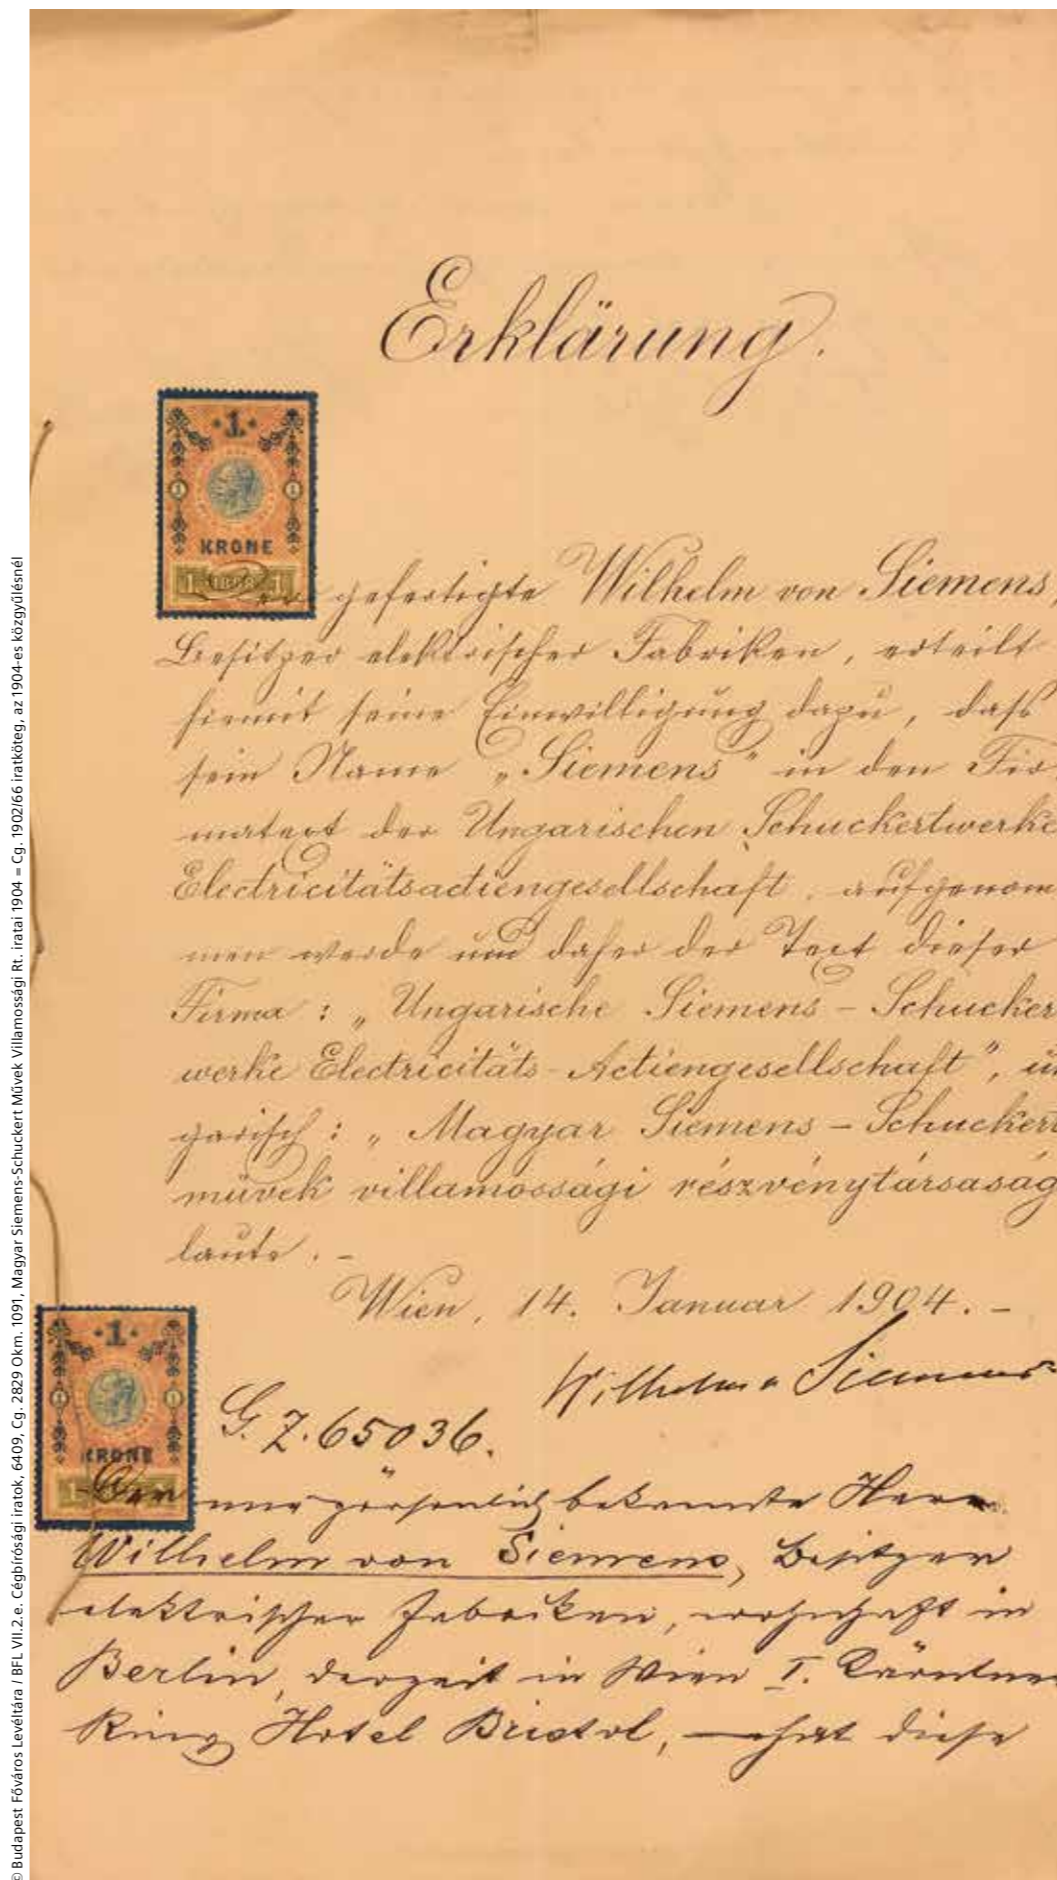 © Budapest Főváros Levéltára / BFL VII.2.e. Cégbírósági iratok, 6409, Cg. 2829 Okm. 1091, Magyar Siemens-Schuckert Művek Villamossági Rt. iratai 1904 = Cg. 1902/66 iratköteg, az 1904-es közgyűlésnél
Erklärung.
1
1 1
KRONE
gefertigte Wilhelm von Siemens,
Besitzer elektrischer Fabriken, erteilt
hiemit seine Einwilligung dazu, daß
sein Name „Siemens" in den Fir
matext der Ungarischen Schuckertwerke
Electricitätsactiengesellschaft, aufgenom
men werde und daher der Text dieser
Firma : „Ungarische Siemens – Schucker
werke Electricitäts-Actiengesellschaft", un
garisch : „Magyar Siemens – Schuckert
művek villamossági részvénytársaság
laute. –
Wien, 14. Januar 1904. –
Wilhelm v Siemens
1
1 1
KRONE
G. Z. 65036.
Der mir persönlich bekannte Herr
Wilhelm von Siemens, Besitzer
elektrischer Fabriken, wohnhaft in
Berlin, derzeit in Wien I. Kärntner
Ring Hotel Bristol, – hat diese